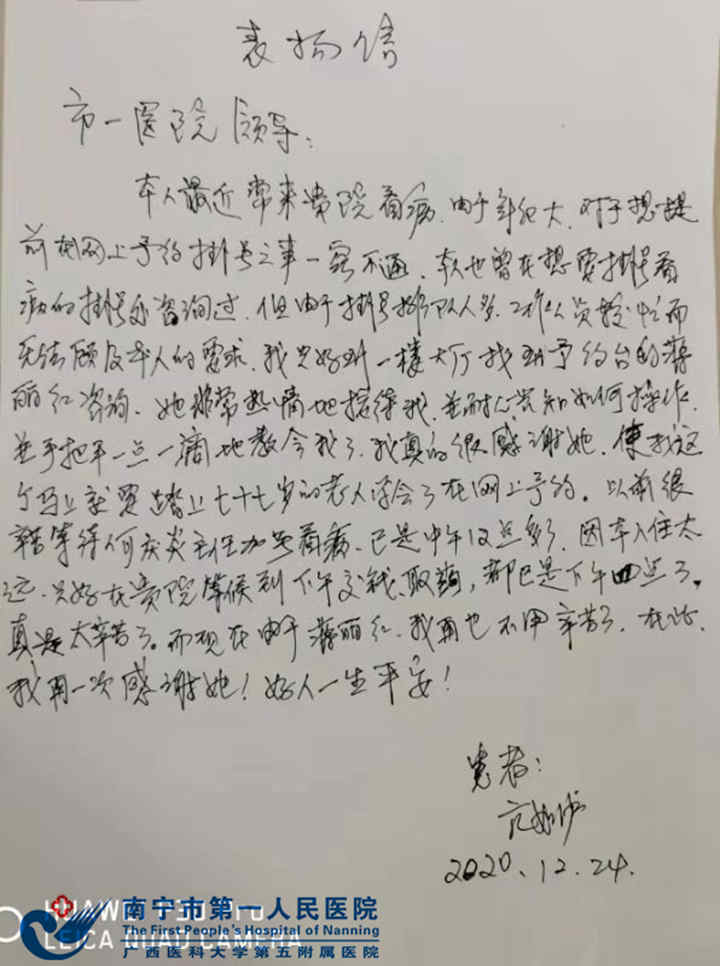 表扬信
市一医院领导:
本人最近常来贵院看病,由于年纪大,对于想提
前在网上予约挂号之事一窍不通,本人也曾在想要挂号看
病的挂号处咨询过,但由于挂号排队人多,工作人员较忙而
无法顾及本人的要求,我只好到一楼大厅找到予约台的蒋
丽红咨询,她非常热情地接待我,并耐心告知如何操作,
并手把手一点一滴地教会我了,我真的很感谢她,使我这
个马上就要踏上七十七岁的老人学会了在网上予约。以前很
辛苦等待何庆炎主任加号看病,已是中午12点多了,因本人住太
远,只好在贵院等候到下午交钱、取药,都已是下午四点了。
真是太辛苦了。而现在由于蒋丽红,我再也不用辛苦了,在此,
我再一次感谢她!好人一生平安!
患者:
2020.12.24.
HUAWEI P30 Pro
LEICA QUAD CAMERA
南宁市第一人民医院
The First People's Hospital of Nanning
广西医科大学第五附属医院